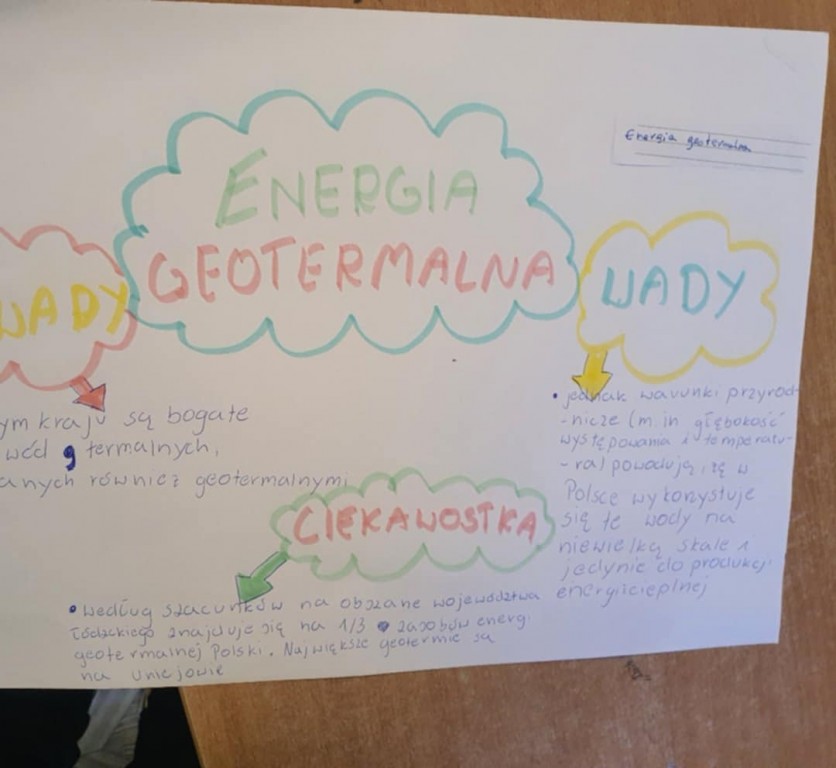 Energia geotermalna
ENERGIA
GEOTERMALNA
WADY
WADY
ym kraju są bogate
wód termalnych,
anych również geotermalnymi
• jednak warunki przyrod-
-nicze (m.in głębokość
występowania i temperatu-
-ra) powodują, iż w
Polsce wykorzystuje
się te wody na
niewielką skale i
jedynie do produkcji
energii cieplnej
CIEKAWOSTKA
• według szacunków na obszarze województwa
łódzkiego znajduje się na 1/3 zasobów energi
geotermalnej Polski. Największe geotermie są
na Uniejowie